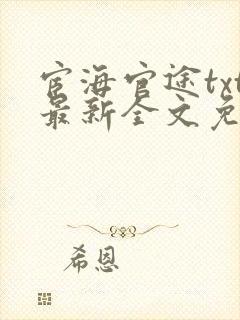 宦海官途txt
最新全文免
希恩